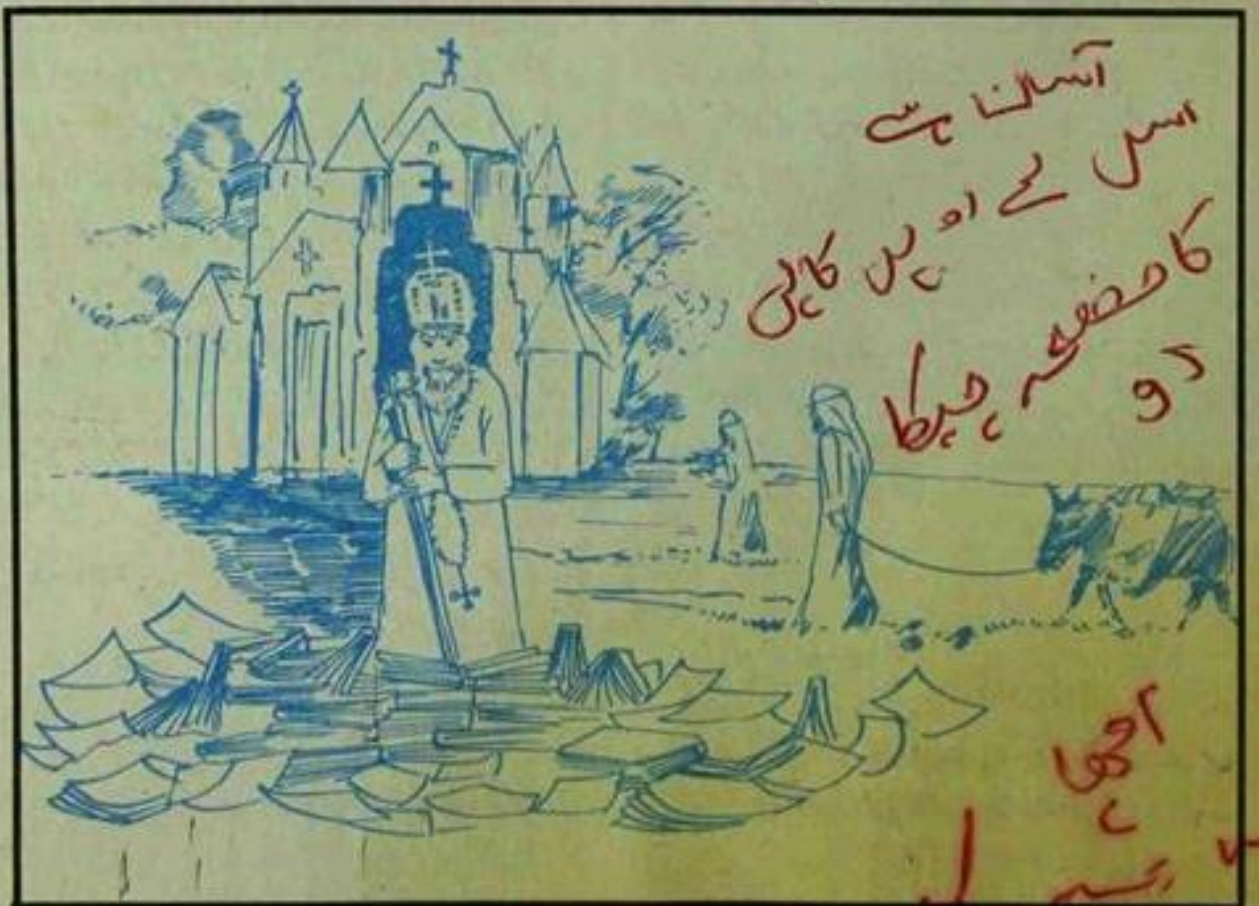 آسان ہے
اس کے اوپر کاپی
کا صفحہ چپکا
دو
اچھا